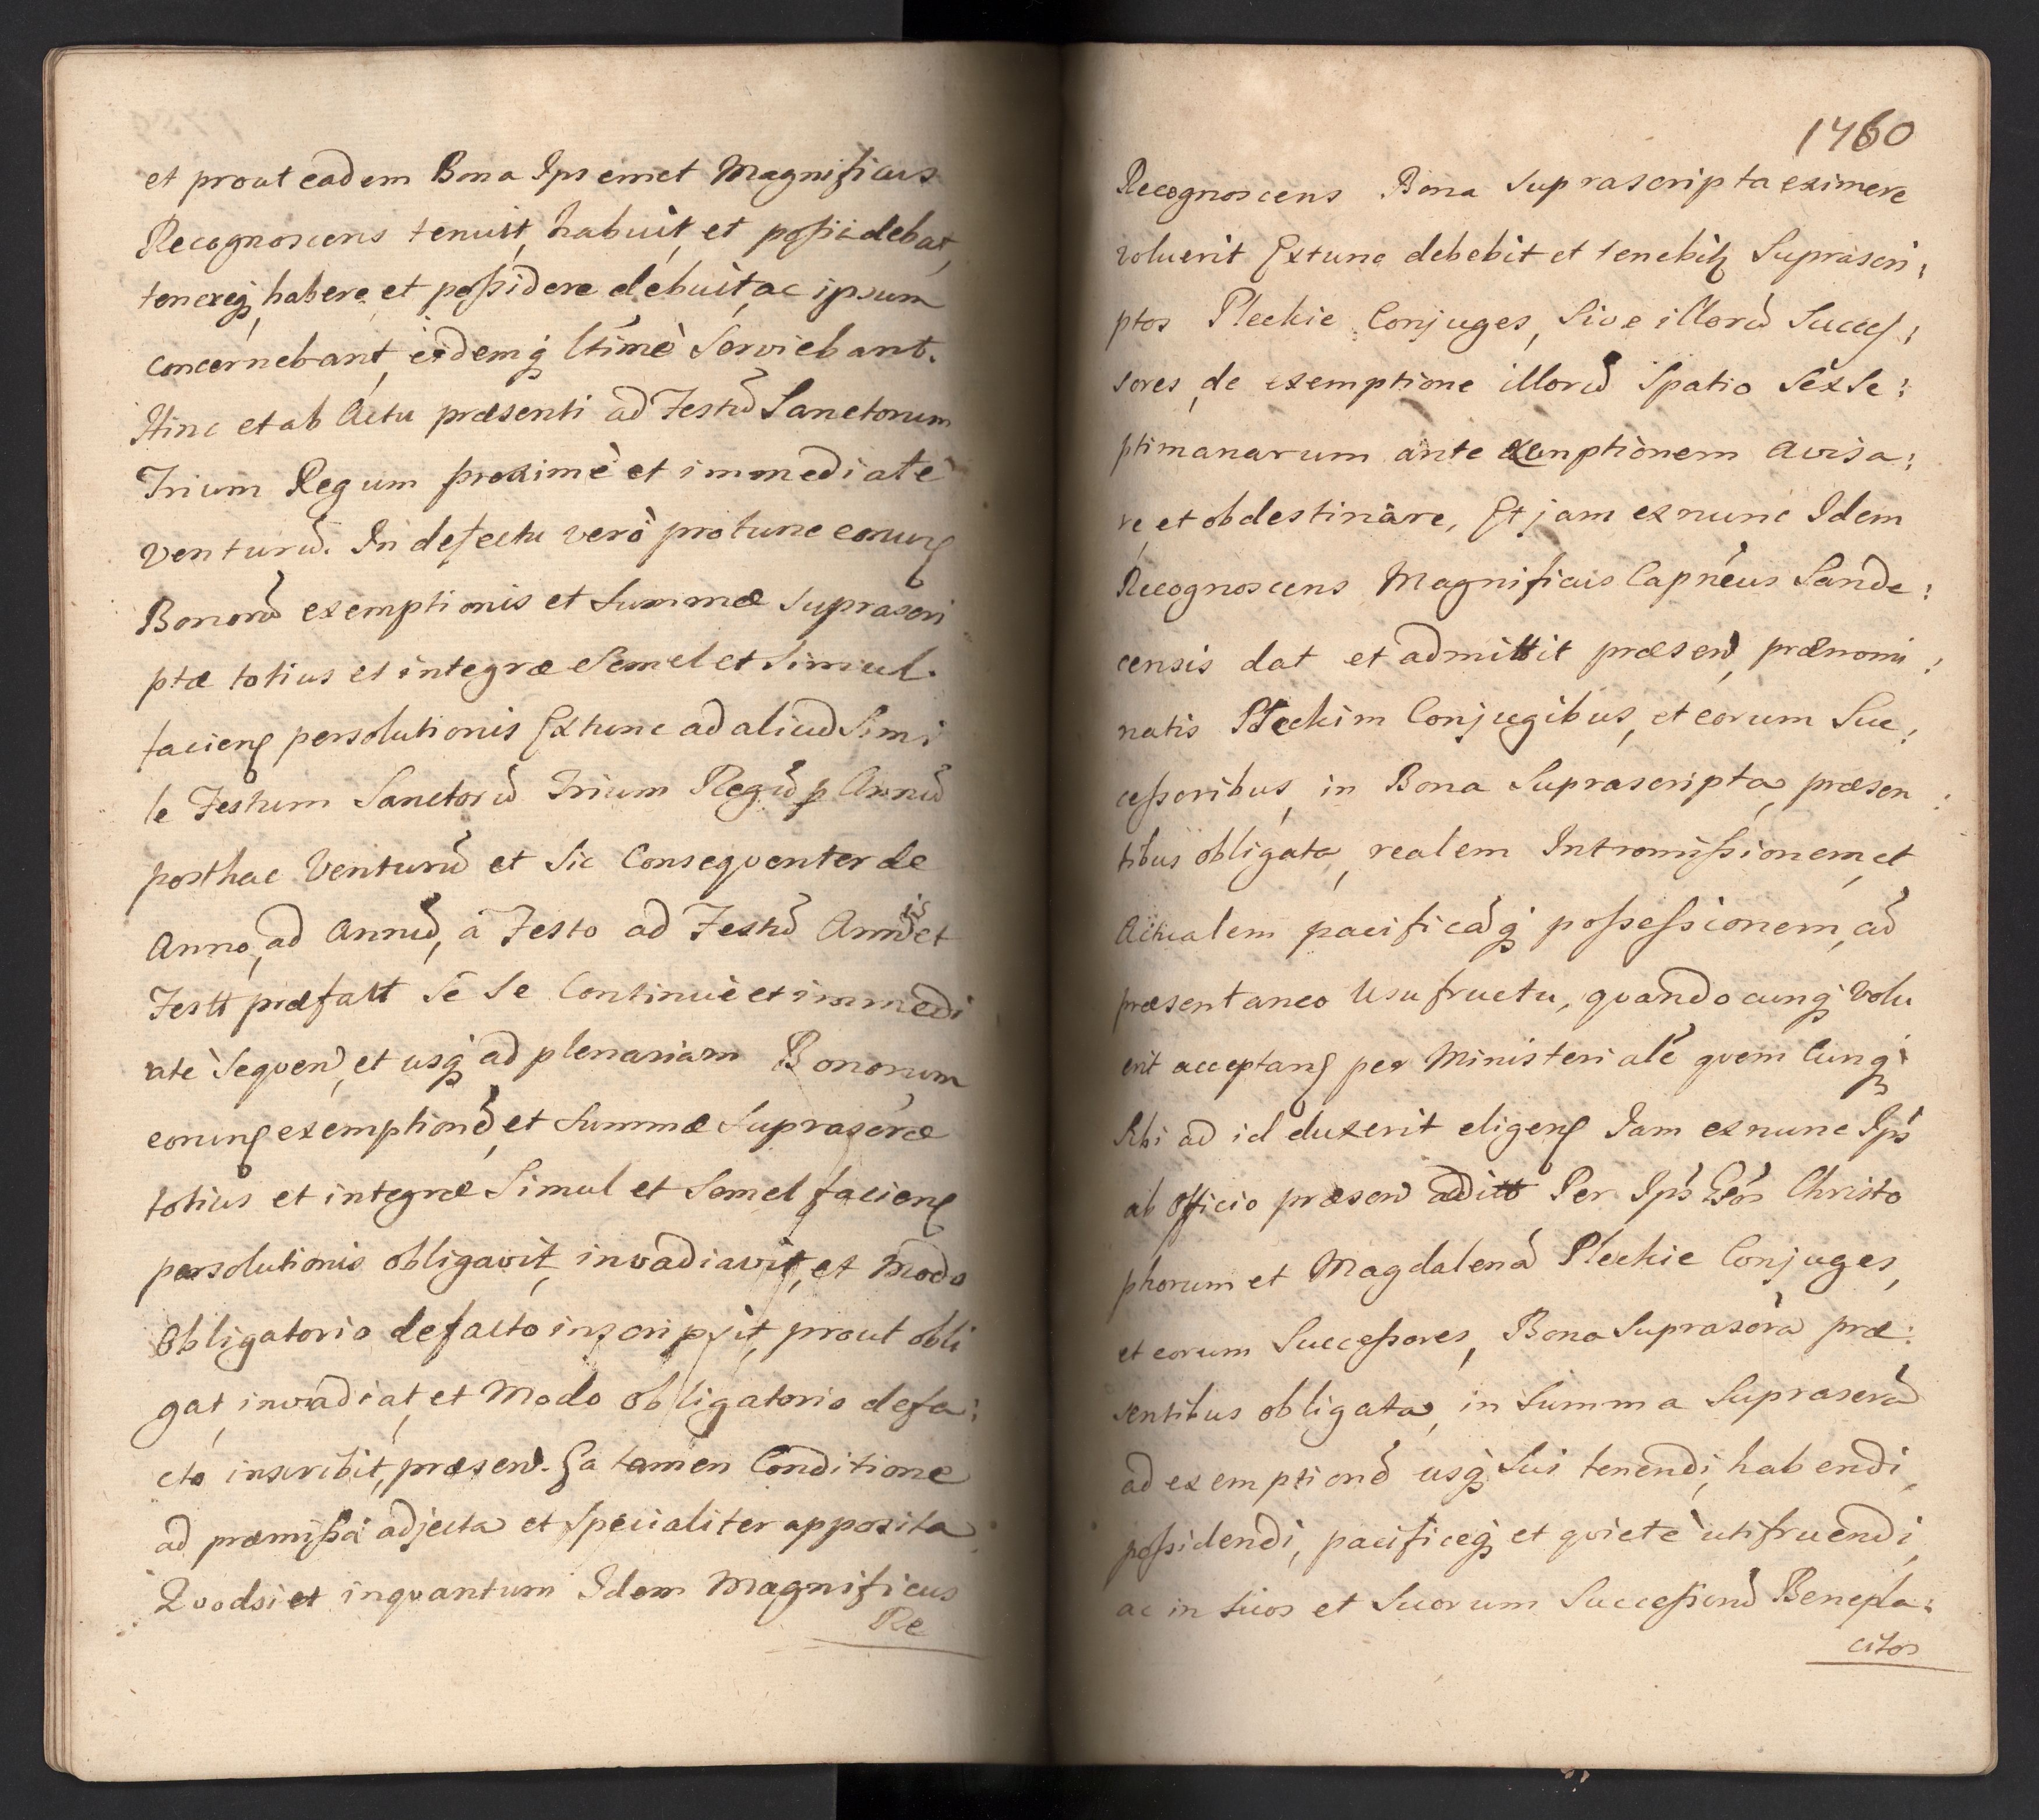 et prout eadem Bona Ipsemet Magnificus
Recognoscens tenuit, habuit, et possidebat,
tenereq, habere, et possidere debuit, ac ipsum
concernebant, eidemq ltimè Serviebant.
Hinc et ab Actu præsenti ad Festū Sanctorum
Trium Regum proximè et immediatè
venturū. In defectu verò pro tunc eorund
Bonorū exemptionis et Summæ suprascri
ptæ totius et integræ Semel et Simul.
faciend persolutionis Extunc ad aliud Simi
le Festum Sanctorū Trium Regū p Annū
posthac Venturū et Sic Consequenter de
Anno, ad Annū, à Festo ad Festū Annis et
Festt præfatt se se Continuè et immedi
atè Sequen, et usq ad plenariam Bonorum
eorund exemptionē, et Summæ Suprascræ
totius et integræ Simul et Semel faciend
persolutionis obligavit, invadiavit, et Modo
Obligatorio defacto inscripsit, prout obli
gat, invadiat, et Modo Obligatorio defa:
cto inscribit, præsen. Ea tamen Conditione
ad præmissa adjecta et specialiter apposita
Quod si et inquantum Idem Magnificus
Re
1760
Recognoscens Bona Suprascripta eximere
voluerit Extunc debebit et tenebit Suprascri:
ptos Pleckie Conjuges, Sive illorū Success:
sores, de exemptione illorū Spatio Sex Se:
ptimanarum ante exemptionem avisa:
re, et obdestinare, Et jam ex nunc Idem
Recognoscens Magnificus Capneus Sande:
censis dat et admittit præsen, prænomi:
natis Pleckim Conjugibus, et eorum Suc:
cessoribus, in Bona Suprascripta, præsen:
tibus obligata, realem Intromissionem, et
Actualem pacificāq possessionem, cū
præsentaneo Usufructu, quandocunq Volu
erit acceptand per Ministerialē quemcunq
Sibi ad id duxerit eligend Iam ex nunc Ips
ab Officio præsen addito Per Ips Gsos Christo
phorum et Magdalenā Pleckie Conjuges,
et eorum Successores, Bona Suprascra præ:
sentibus obligata, in Summa Suprascra
ad exemptionē usq Sui tenendi, habendi,
possidendi, pacificeq et quietè utifruendi,
ac in suos et Suorum Successionū Benepla:
citos